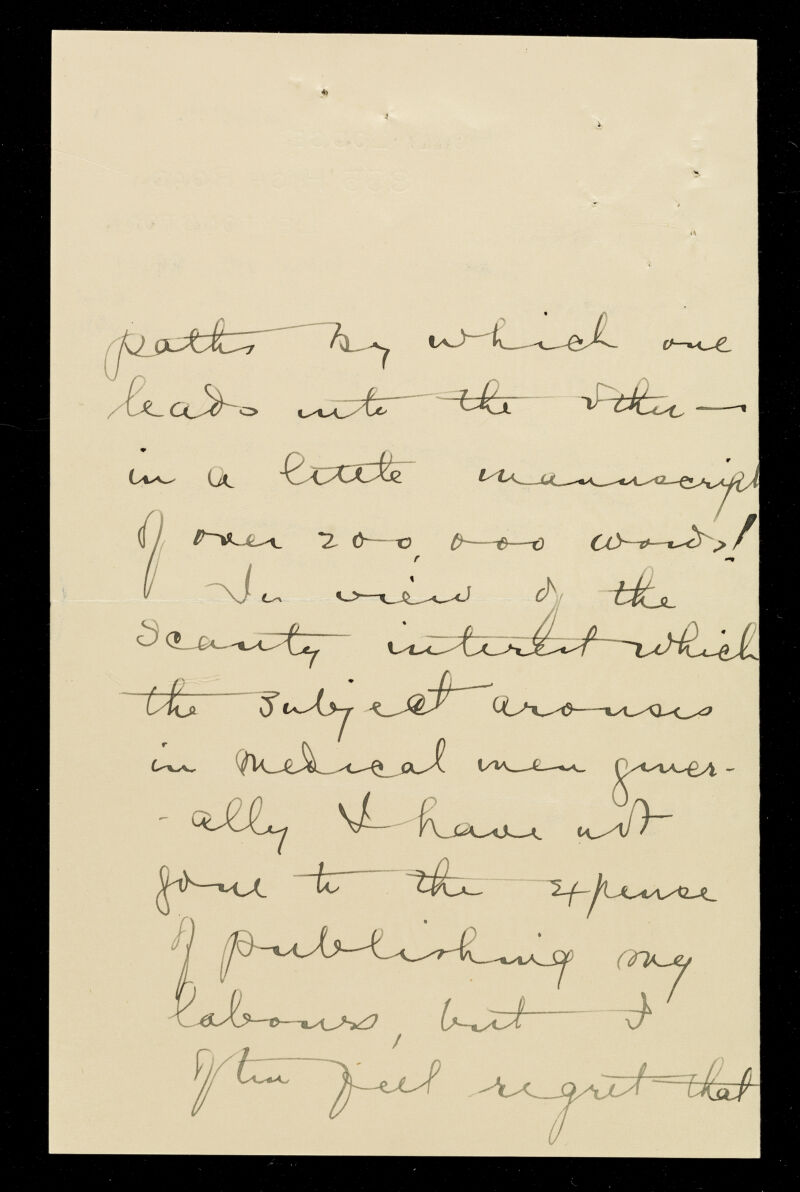 paths by which one
leads into the other —
in a little manuscript
of over 200,000 words!
In view of the
scanty interest which
the subject arouses
in medical men gener-
- ally I have not
gone to the expense
of publishing my
labours, but I
often feel regret that